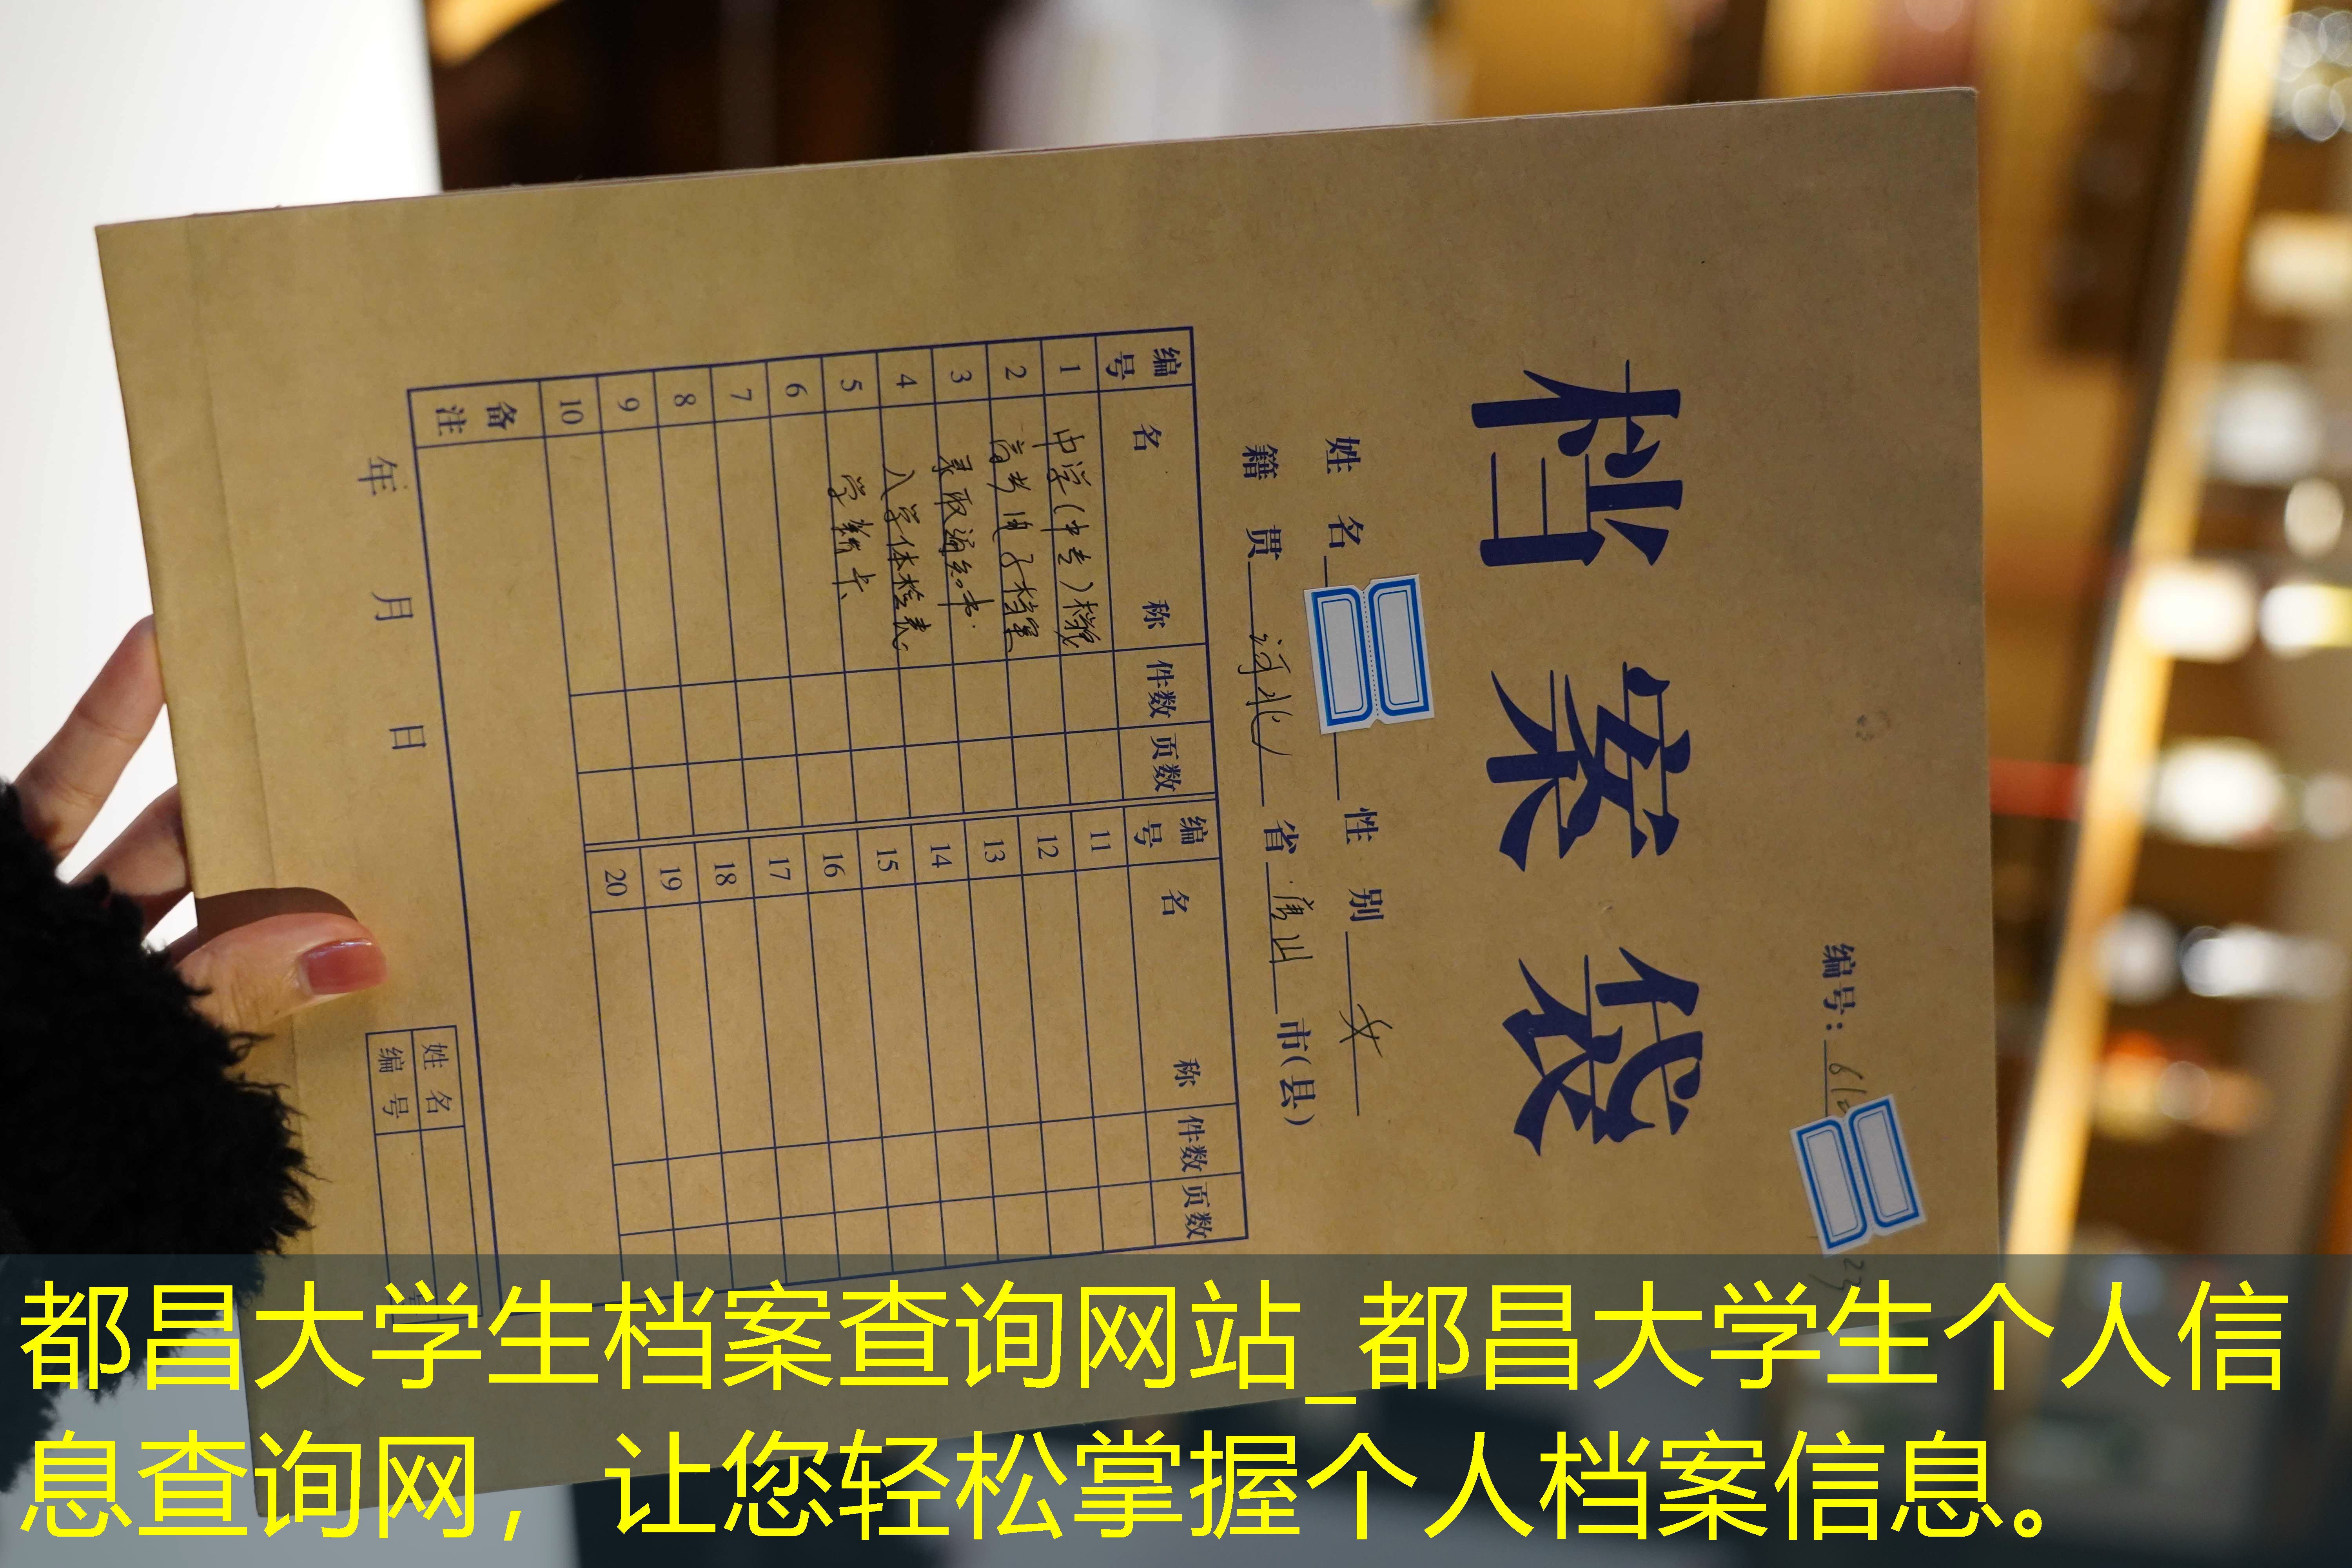 编号：
档案袋
姓名 性别 女
籍贯 河北 省 唐山 市(县)
编号 名称 件数 页数 编号 名称 件数 页数
1 中学(中专)档案 11
2 高考电子档案 12
3 录取通知书 13
4 入学体检表 14
5 学籍卡 15
6 16
7 17
8 18
9 19
10 20
备注
年 月 日
姓名
编号
都昌大学生档案查询网站_都昌大学生个人信
息查询网，让您轻松掌握个人档案信息。